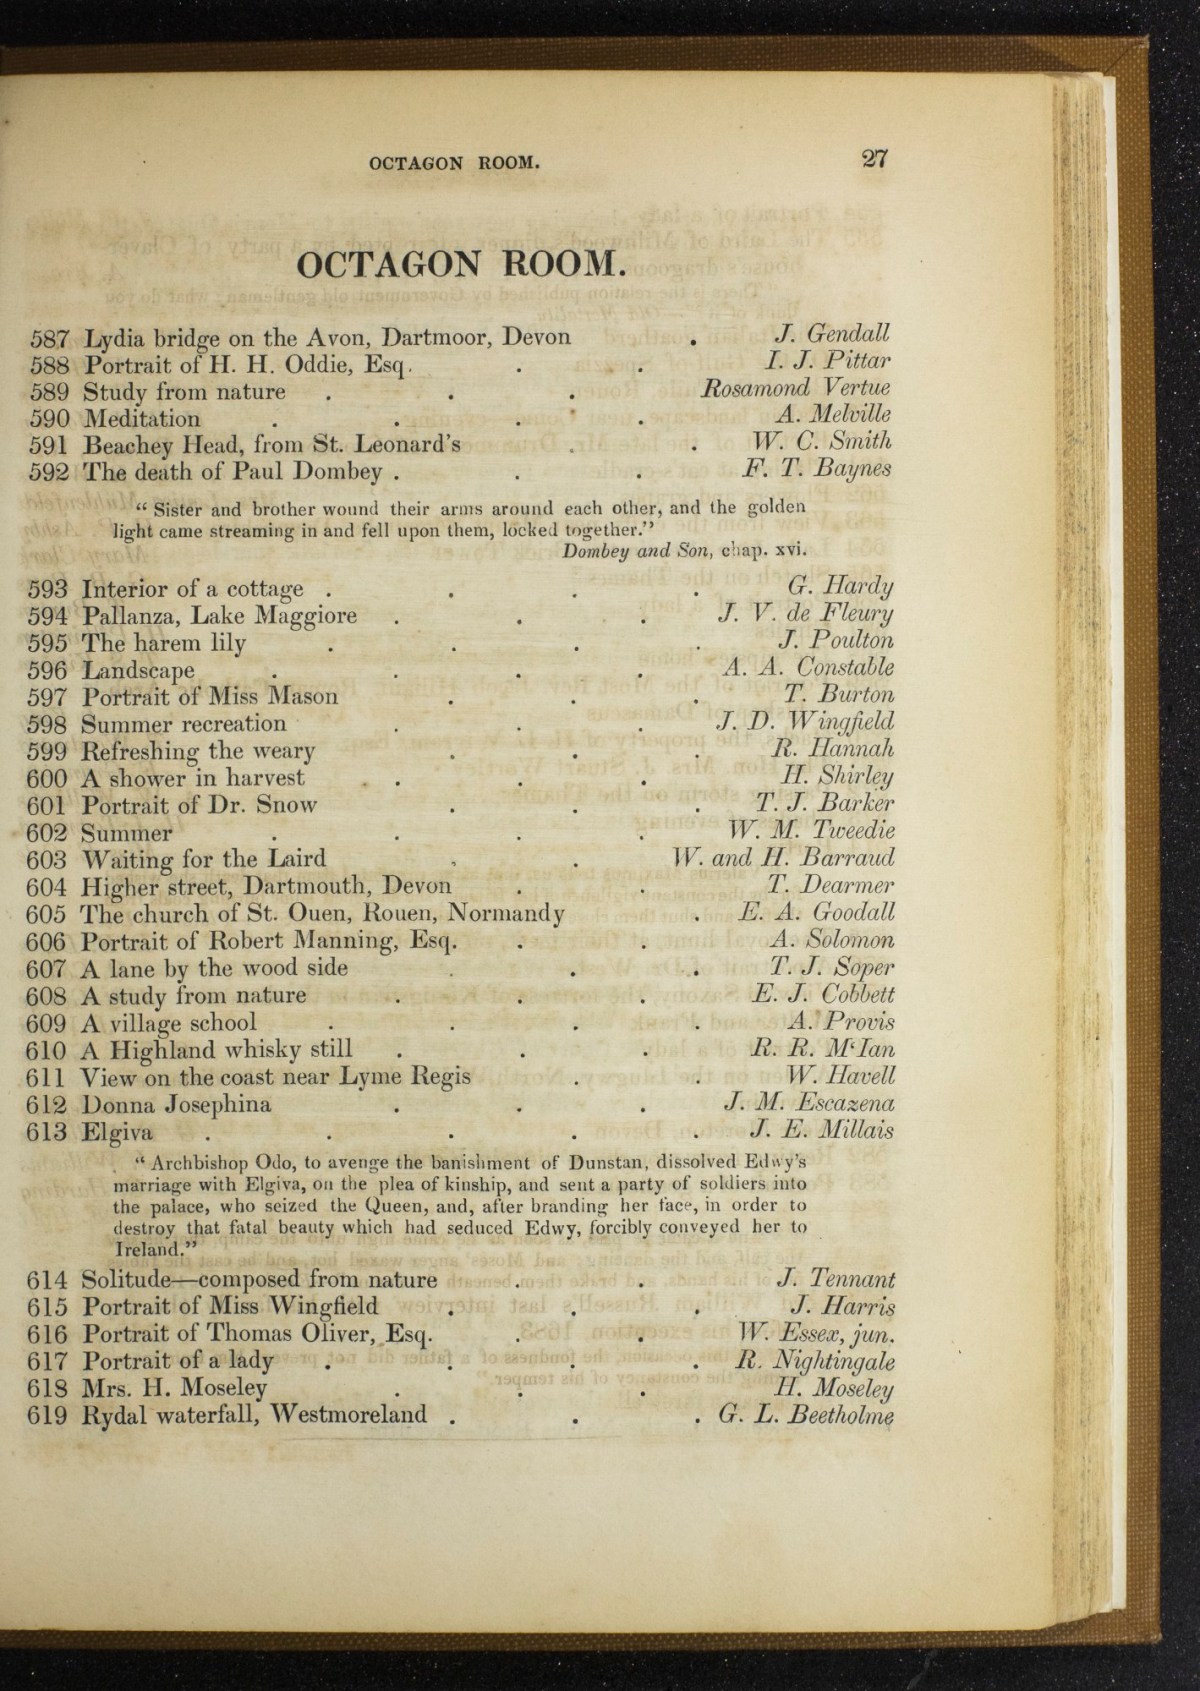 OCTAGON ROOM. 27
OCTAGON ROOM.
587 Lydia bridge on the Avon, Dartmoor, Devon . J. Gendall
588 Portrait of H. H. Oddie, Esq. . . I. J. Pittar
589 Study from nature . . . Rosamond Vertue
590 Meditation . . . . A. Melville
591 Beachey Head, from St. Leonard's . . W. C. Smith
592 The death of Paul Dombey . . . F. T. Baynes
“ Sister and brother wound their arms around each other, and the golden
light came streaming in and fell upon them, locked together.”
Dombey and Son, chap. xvi.
593 Interior of a cottage . . . . G. Hardy
594 Pallanza, Lake Maggiore . . . J. V. de Fleury
595 The harem lily . . . . J. Poulton
596 Landscape . . . . A. A. Constable
597 Portrait of Miss Mason . . . T. Burton
598 Summer recreation . . . J. D. Wingfield
599 Refreshing the weary . . . R. Hannah
600 A shower in harvest . . . H. Shirley
601 Portrait of Dr. Snow . . . T. J. Barker
602 Summer . . . . W. M. Tweedie
603 Waiting for the Laird . . W. and H. Barraud
604 Higher street, Dartmouth, Devon . . T. Dearmer
605 The church of St. Ouen, Rouen, Normandy . E. A. Goodall
606 Portrait of Robert Manning, Esq. . . A. Solomon
607 A lane by the wood side . . . T. J. Soper
608 A study from nature . . . E. J. Cobbett
609 A village school . . . . A. Provis
610 A Highland whisky still . . . R. R. M‘Ian
611 View on the coast near Lyme Regis . . W. Havell
612 Donna Josephina . . . J. M. Escazena
613 Elgiva . . . . . J. E. Millais
“ Archbishop Odo, to avenge the banishment of Dunstan, dissolved Edwy's
marriage with Elgiva, on the plea of kinship, and sent a party of soldiers into
the palace, who seized the Queen, and, after branding her face, in order to
destroy that fatal beauty which had seduced Edwy, forcibly conveyed her to
Ireland.”
614 Solitude—composed from nature . . J. Tennant
615 Portrait of Miss Wingfield . . . J. Harris
616 Portrait of Thomas Oliver, Esq. . . W. Essex, jun.
617 Portrait of a lady . . . . R. Nightingale
618 Mrs. H. Moseley . . . H. Moseley
619 Rydal waterfall, Westmoreland . . . G. L. Beetholme